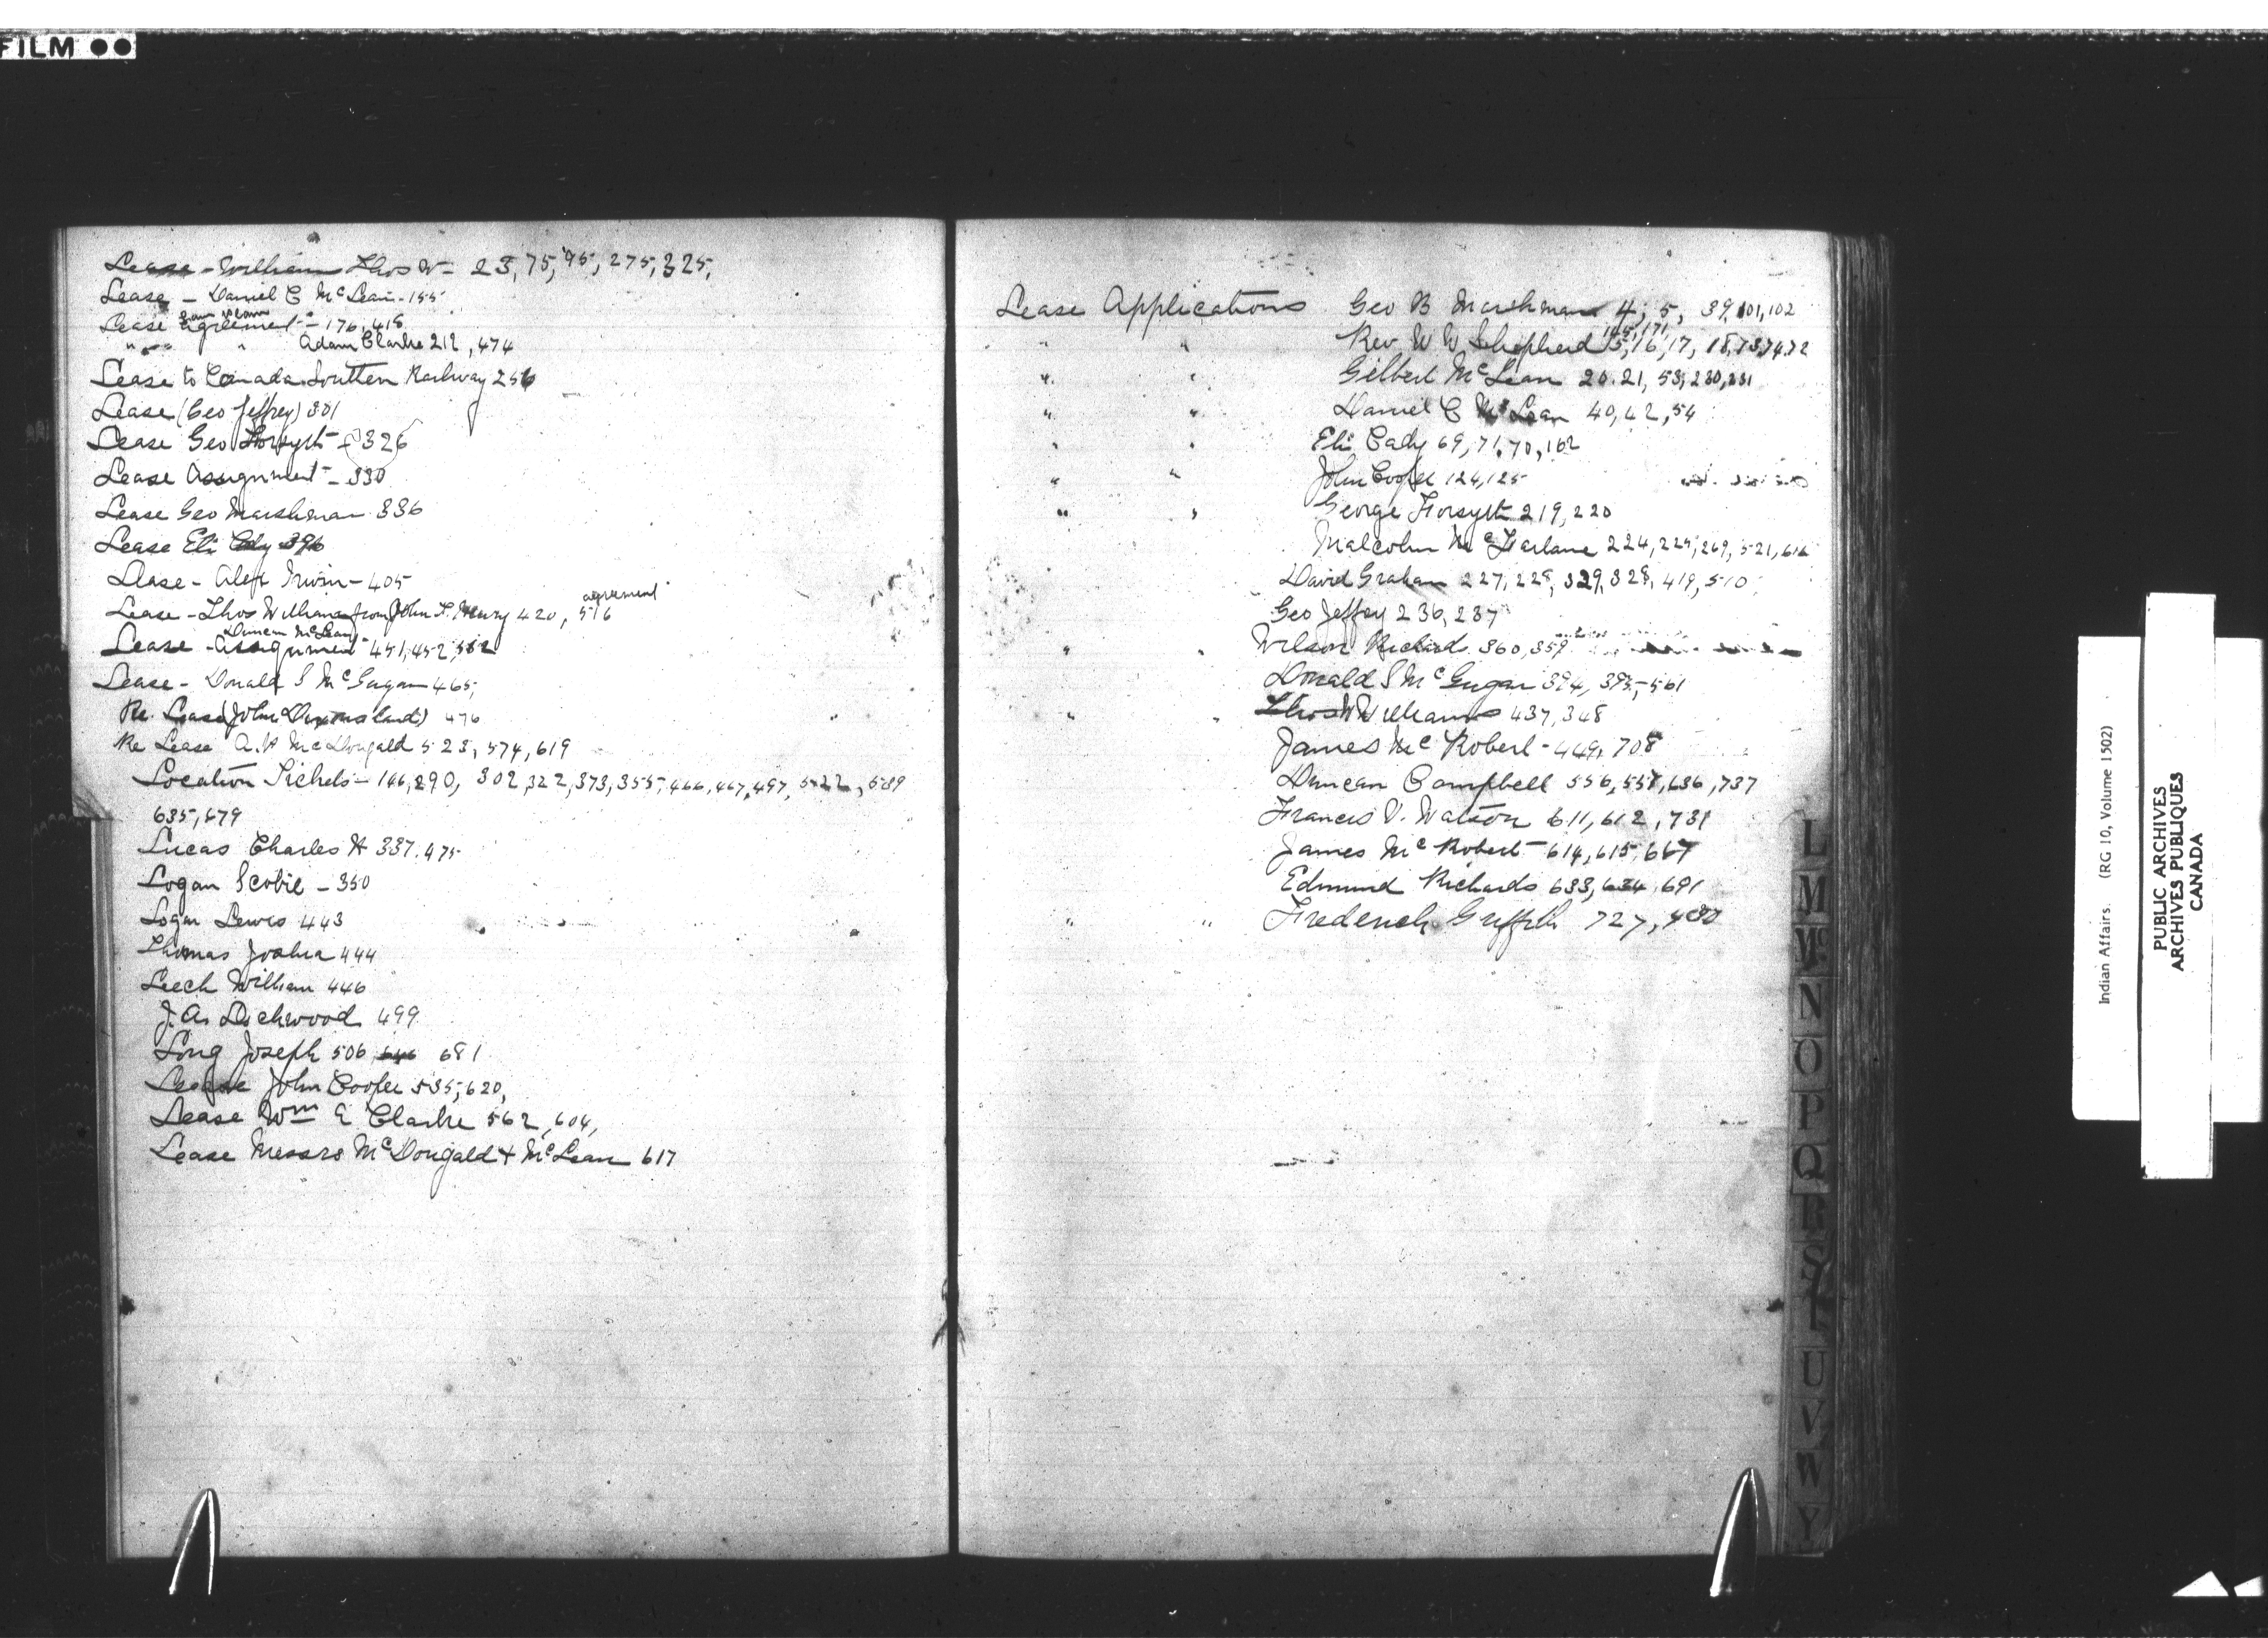 FILM
Lease - William Thos W - 23, 75, 95, 275, 325,
Lease - Daniel C McLean - 155
Lease agreement - 176, 418
" " Adam Clarke 212, 474
Lease to Canada Southern Railway 256
Lease (Geo Jeffrey) 301
Lease Geo Forsyth - 326
Lease Assignment - 330
Lease Geo Marshman 336
Lease Eli Cady 396
Lease - Alex Irwin - 405
agreement
Lease - Thos Williams from John T. Henry 420, 516
Duncan McLean
Lease - Assignment 451, 452, 562
Lease - Donald S McGugan 465,
Re. Lease (John ) 476
Re Lease A. McDougald 523, 574, 619
Location Tickets - 146, 290, 302, 322, 373, 355, 466, 467, 497, 522, 589
635, 679
Lucas Charles H 337, 475
Logan Scobie - 350
Logan Lewis 443
Thomas Joshua 444
Leech William 446
J. A. Lockwood 499
Long Joseph 506 681
Lease John Cooper 535, 620,
Lease Wm E Clarke 562, 604,
Lease Messrs McDougald + McLean 617
Lease Applications Geo B Marshman 4, 5, 39, 101, 102
165, 171
" " Rev. W W Shepherd 15, 16, 17, 18, 73, 74, 72
" " Gilbert McLean 20, 21, 53, 230, 231
" " Daniel C McLean 40, 42, 54
" " Eli Cady 69, 71, 70, 162
" " John Cooper 124, 125
" " George Forsyth 219, 220
Malcolm McFarlane 224, 225, 269, 521, 616
David Graham 227, 228, 329, 328, 419, 510
Geo Jeffrey 236, 237
" " Wilson Richards 360, 359
Donald S McGugan 394, 395, 561
" " Thos W Williams 437, 348
James McRobert - 449, 708
Duncan Campbell 556, 557, 636, 737
Francis V. Watson 611, 612, 731
James McRobert 614, 615, 667
Edmund Richards 633, 634, 691
" " Frederick Griffith 727, 480
L
M
Mc
N
O
P
Q
R
S
T
U
V
W
Y
Indian Affairs. (RG 10, Volume 1502)
PUBLIC ARCHIVES
ARCHIVES PUBLIQUES
CANADA